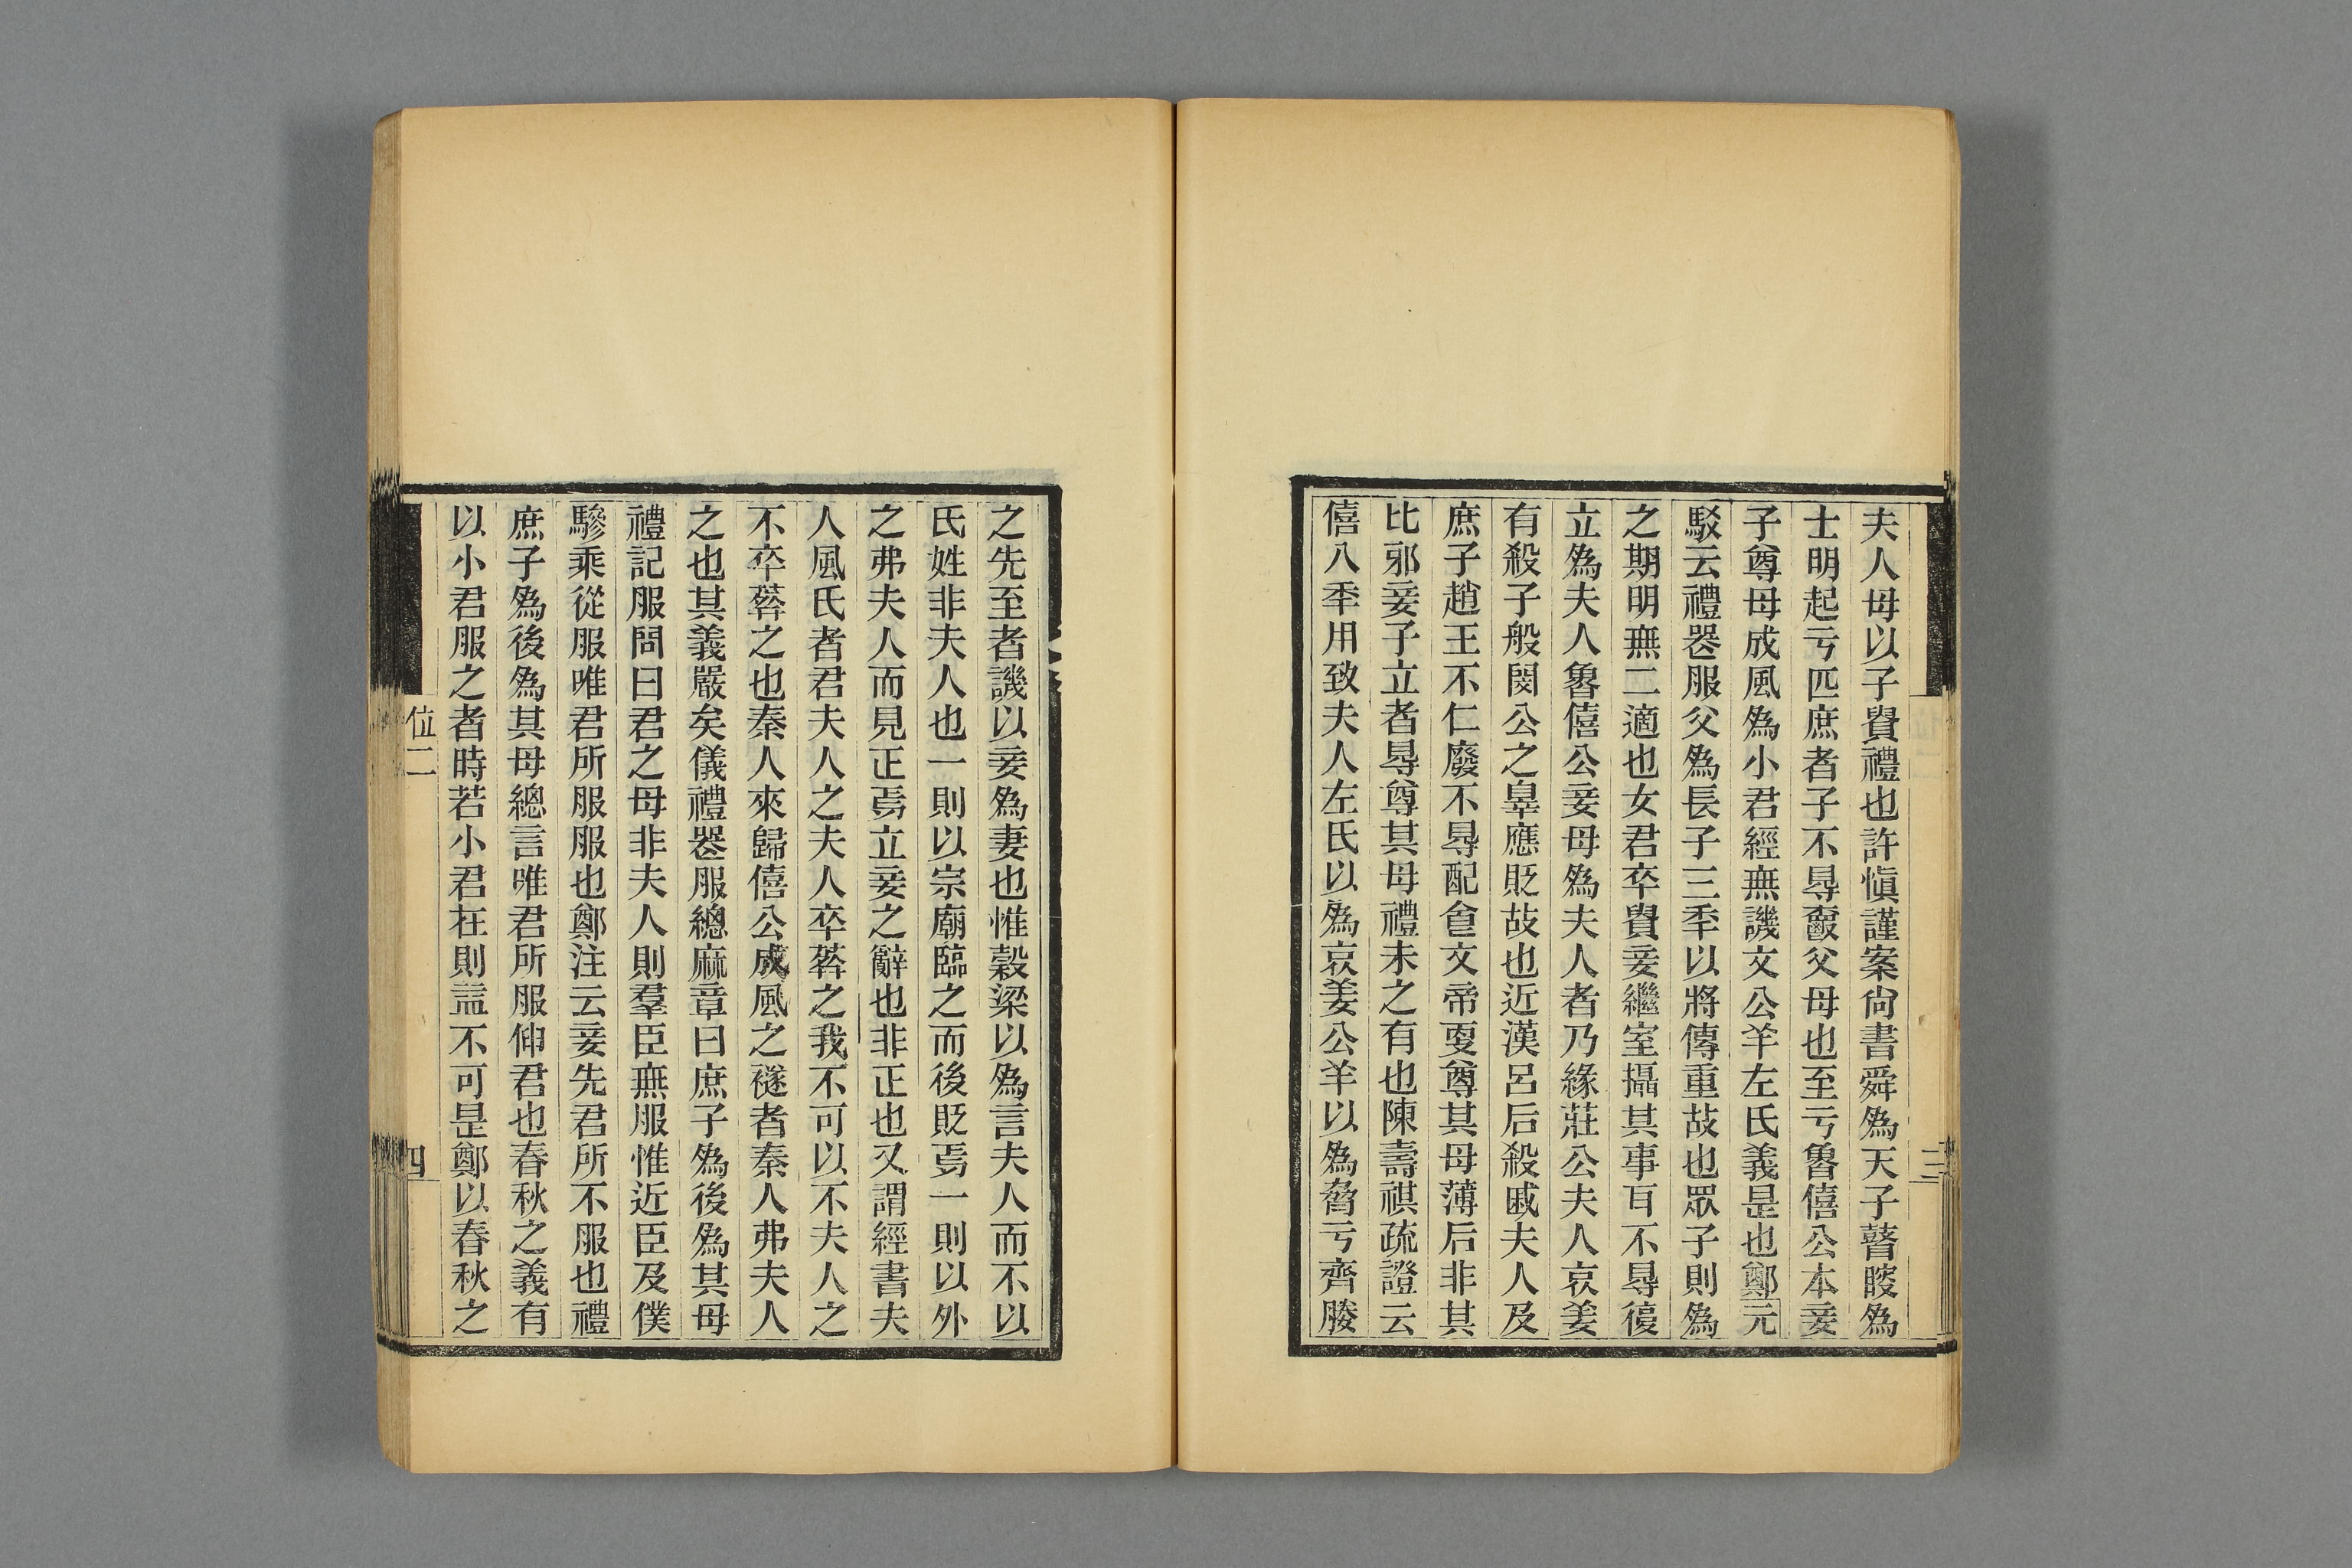 夫人母以子貴禮也許愼謹案尙書舜爲天子瞽瞍爲
士明起亏匹庶者子不㝵�. 父母也至亏魯僖公本妾
子尊母成風爲小君經無譏文公羊左氏義是也鄭元
駁云禮器服父爲長子三秊以將傳重故也眾子則爲
之期明無二適也女君卒貴妾繼室攝其事耳不㝵復
立爲夫人魯僖公妾母爲夫人者乃緣莊公夫人哀姜
有殺子般閔公之辠應貶故也近漢呂后殺戚夫人及
庶子趙王不仁廢不㝵配食文帝更尊其母薄后非其
比邪妾子立者㝵尊其母禮未之有也陳壽祺疏證云
僖八秊用致夫人左氏以爲哀姜公羊以爲脅亏齊媵
三
之先至者譏以妾爲妻也惟穀梁以爲言夫人而不以
氏姓非夫人也一則以宗廟臨之而後貶焉一則以外
之弗夫人而見正焉立妾之辭也非正也又謂經書夫
人風氏者君夫人之夫人卒葬之我不可以不夫人之
不卒葬之也秦人來歸僖公成風之襚者秦人弗夫人
之也其義嚴矣儀禮器服緦麻章曰庶子爲後爲其母
禮記服問曰君之母非夫人則羣臣無服惟近臣及僕
驂乘從服唯君所服服也鄭注云妾先君所不服也禮
庶子爲後爲其母緦言唯君所服伸君也春秋之義有
以小君服之者時若小君在則益不可是鄭以春秋之
位二
四